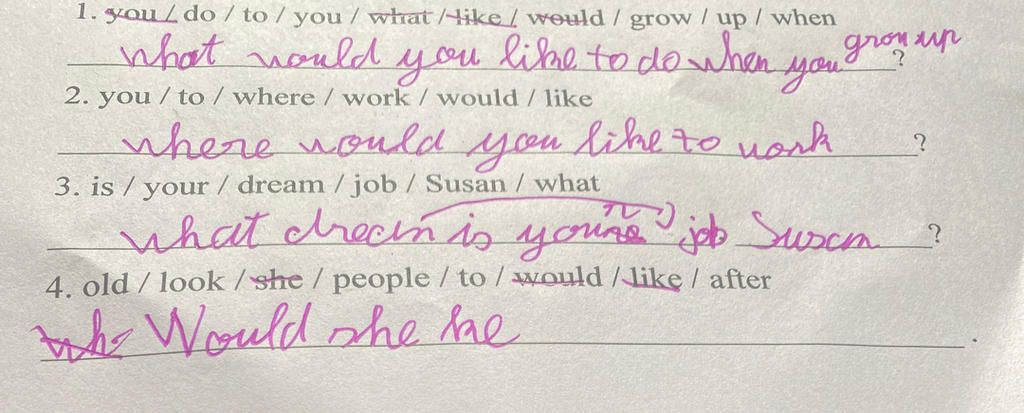 1. you / do / to / you / what / like / would / grow / up / when
what would you like to do when you grow up ?
2. you / to / where / work / would / like
where would you like to work ?
3. is / your / dream / job / Susan / what
what dream is your job Susan ?
4. old / look / she / people / to / would / like / after
Would she .